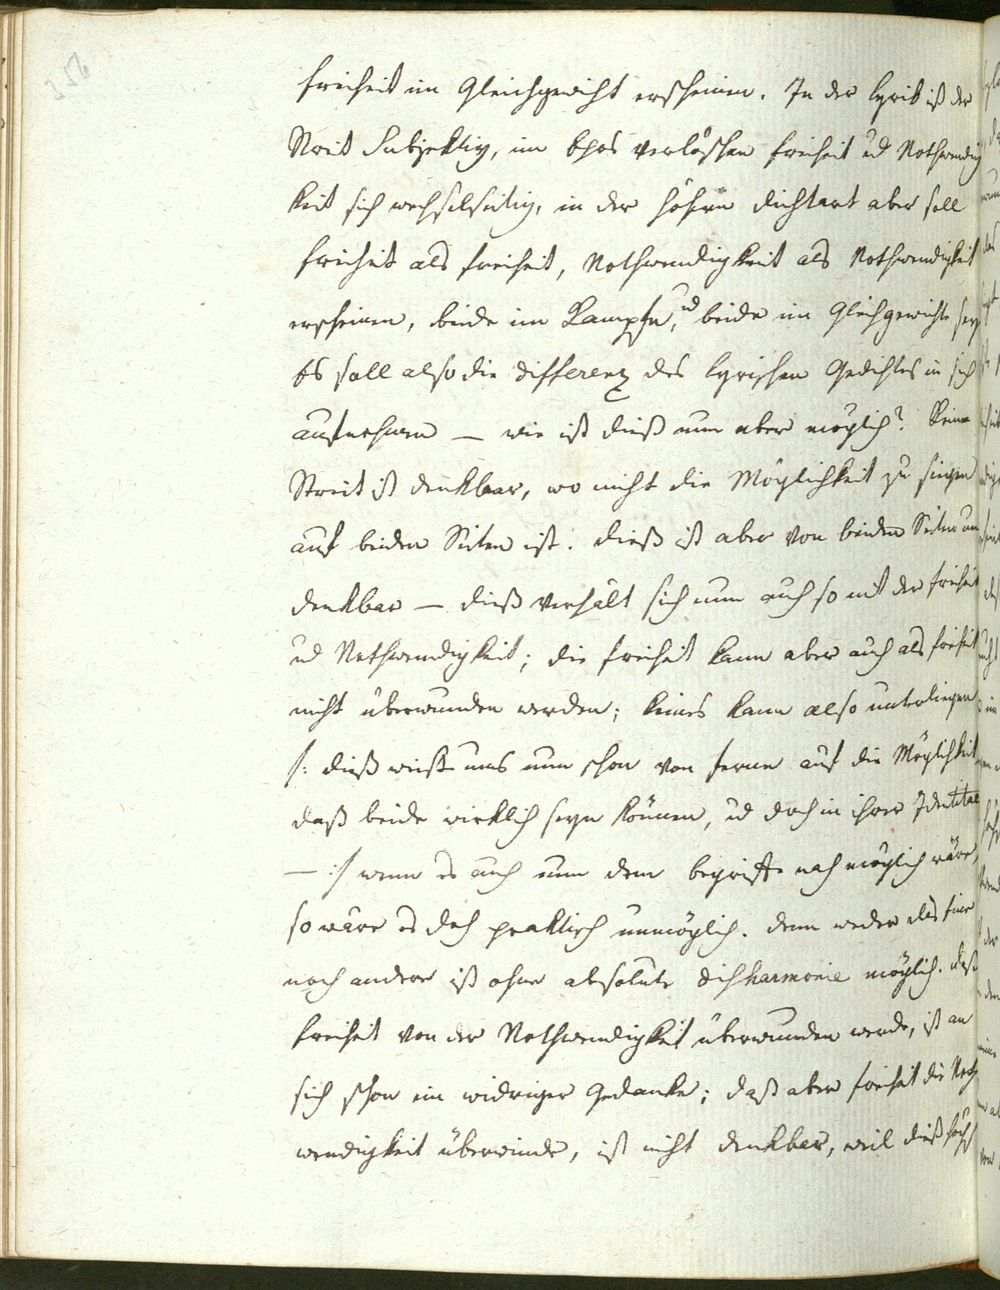 356
Freiheit im Gleichgewicht erscheinen. In der Lyrik ist der
Streit Subjektiv, im Epos verlöschen Freiheit ud Nothwendig
keit sich wechselseitig, in der höhern Dichtart aber soll
Freiheit als Freiheit, Nothwendigkeit als Nothwendigkeit
erscheinen, beide im Kampfe, ud beide im Gleichgewichte seyn
Es soll also die Differenz des lyrischen Gedichtes in sich
aufnehmen — wie ist dieß nun aber möglich? Kein
Streit ist denkbar, wo nicht die Möglichkeit zu siegen
auf beiden Seiten ist. Dieß ist aber von beiden Seiten un
denkbar — dieß verhält sich nun auch so mit der Freiheit
ud Nothwendigkeit; die Freiheit kann aber auch als Freiheit
nicht überwunden werden; keines kann also unterliegen
/: dieß weißt uns nun schon von ferne auf die Möglichkeit
daß beide wirklich seyn können, ud doch in ihrer Identitae
— :/ wenn es auch nun dem begriffe nach möglich wäre,
so wäre es doch praktisch unmöglich. Denn weder das Eine
noch andere ist ohne absolute Disharmonie möglich. Daß
Freiheit von der Nothwendigkeit überwunden werde, ist an
sich schon ein widriger Gedanke; daß aber Freiheit die Noth
wendigkeit überwinde, ist nicht denkbar, weil dieß höchst